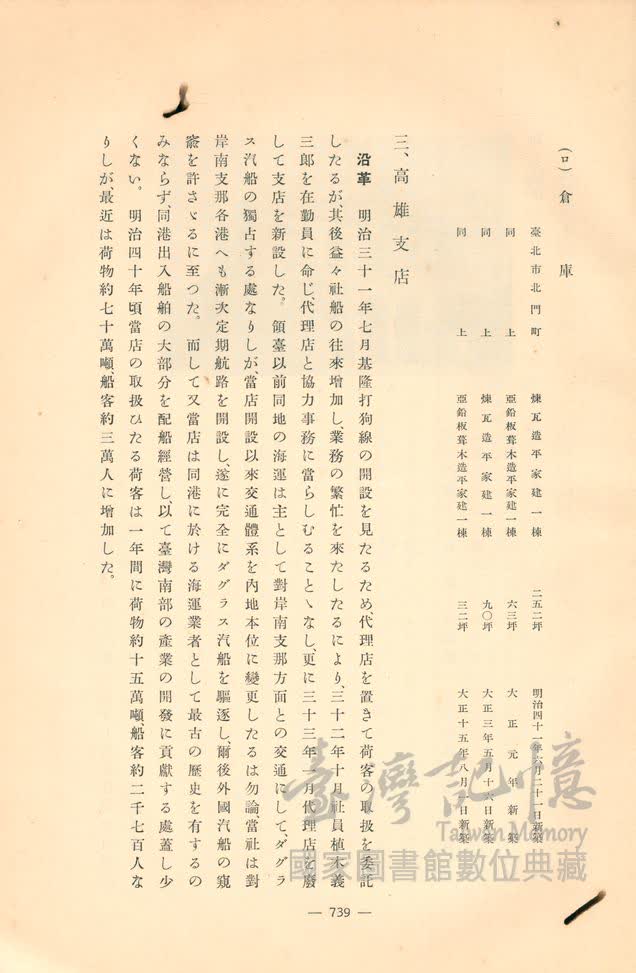 (ロ) 倉庫
臺北市北門町 煉瓦造平家建一棟 二五二坪 明治四十一年六月二十一日新築
同上 亞鉛板葺木造平家建一棟 六三坪 大正元年新築
同上 煉瓦造平家建一棟 九〇坪 大正三年五月十六日新築
同上 亞鉛板葺木造平家建一棟 三二坪 大正十五年八月一日新築
三、高雄支店
沿革 明治三十一年七月基隆打狗線の開設を見たるため、代理店を置きて荷客の取扱を委託
したるが、其後益々社船の往來增加し、業務の繁忙を來たしたるにより、三十二年十月社員植木義
三郎を在勤員に命じ、代理店と協力事務に當らしむることゝなし、更に三十三年一月代理店を廢
して支店を新設した。領臺以前同地の海運は主として對岸南支那方面との交通にして、ダグラ
ス汽船の獨占する處なりしが、當店開設以來交通體系を內地本位に變更したるは勿論、當社は對
岸南支那各港へも漸次定期航路を開設し、遂に完全にダグラス汽船を驅逐し、爾後外國汽船の窺
窬を許さゞるに至つた。而して又當店は同港に於ける海運業者として最古の歷史を有するの
みならず、同港出入船舶の大部分を配船經營し、以て臺灣南部の產業の開發に貢獻する處蓋し少
くない。明治四十年頃當店の取扱ひたる荷客は一年間に荷物約十五萬噸、船客約二千七百人な
りしが、最近は荷物約七十萬噸、船客約三萬人に增加した。
臺灣記憶
Taiwan Memory
國家圖書館數位典藏
— 739 —